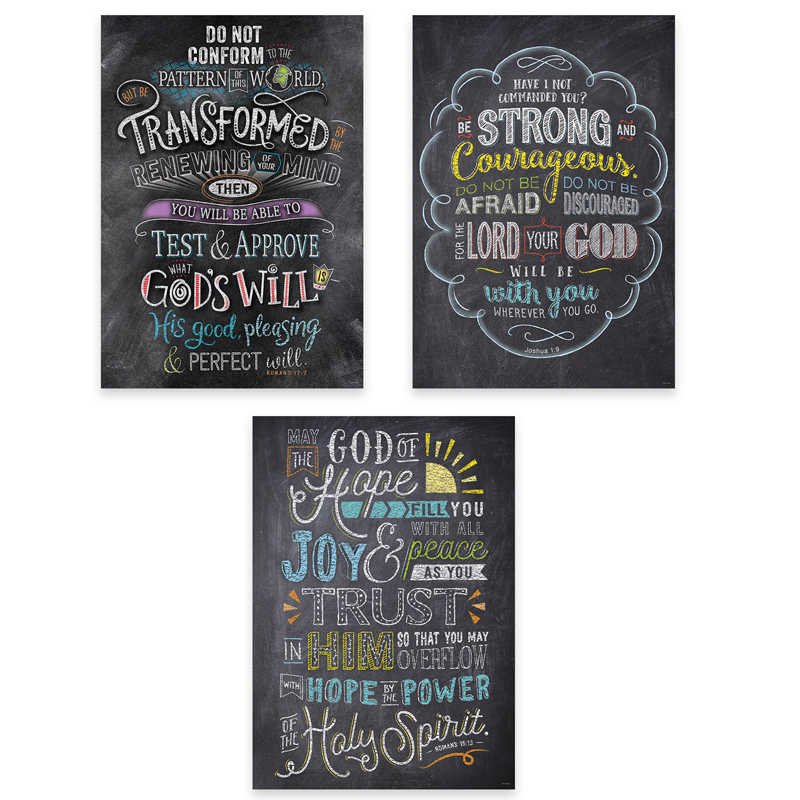 DO NOT
CONFORM TO THE
PATTERN OF THIS WORLD,
BUT BE
TRANSFORMED BY THE
RENEWING OF YOUR MIND,
THEN
YOU WILL BE ABLE TO
TEST & APPROVE
WHAT
GOD'S WILL IS
His good, pleasing
& PERFECT will.
ROMANS 12:2
HAVE I NOT
COMMANDED YOU?
BE STRONG AND
Courageous.
DO NOT BE AFRAID
DO NOT BE DISCOURAGED
FOR THE LORD YOUR GOD
WILL BE
with you
WHEREVER YOU GO.
Joshua 1:9
MAY THE GOD OF
Hope
FILL YOU
WITH ALL
JOY & peace
AS YOU
TRUST
IN HIM SO THAT YOU MAY
OVERFLOW
WITH HOPE BY THE POWER
OF THE Holy Spirit.
ROMANS 15:13